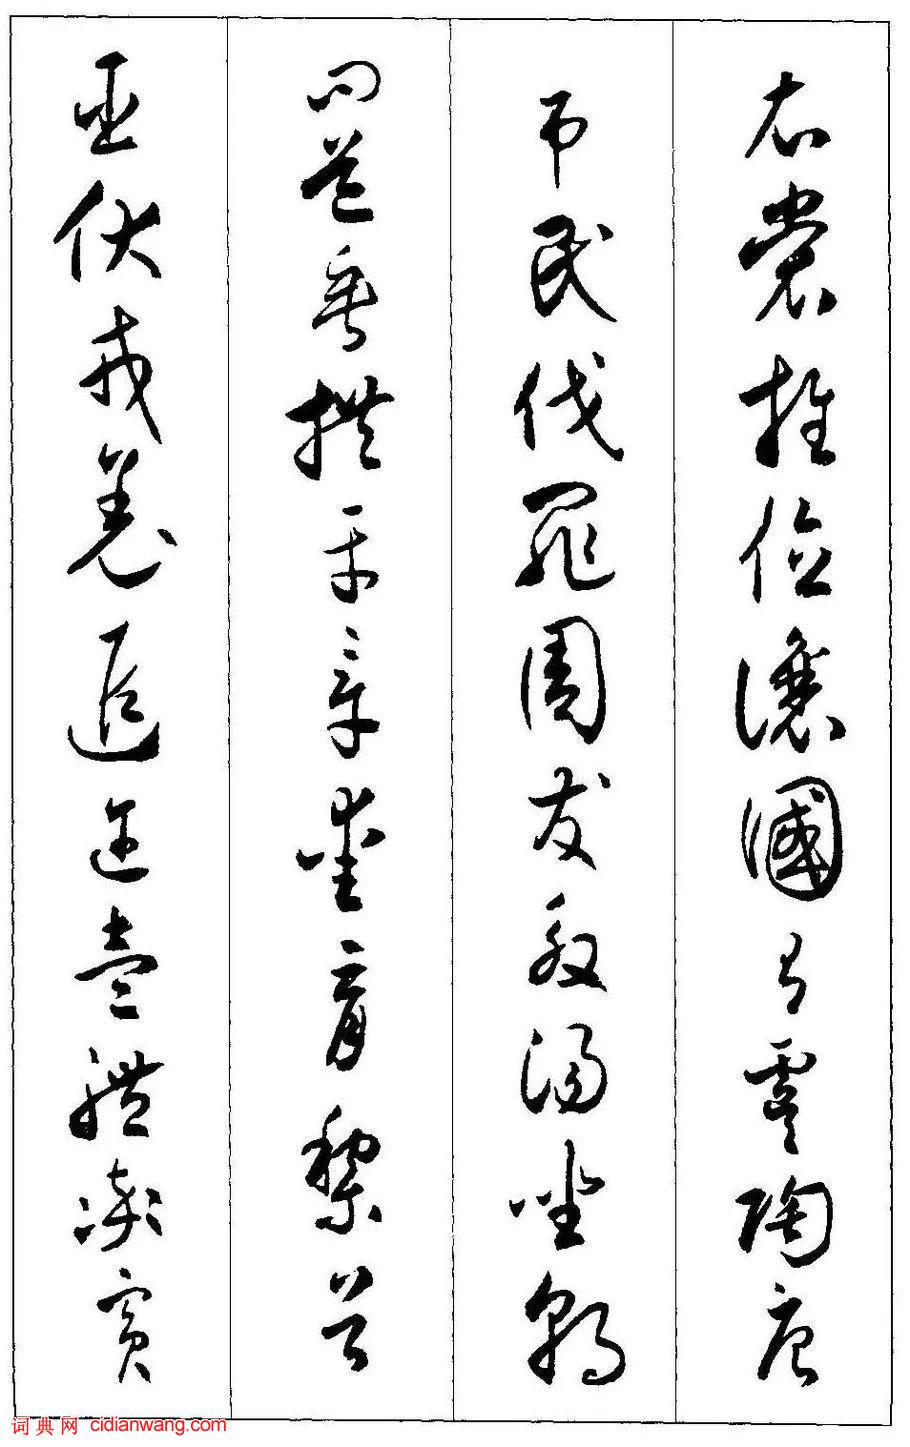 衣裳推位讓國有虞陶唐
弔民伐罪周發殷湯坐朝
問道垂拱平章愛育黎首
臣伏戎羌遐邇壹體率賓
词典网 cidianwang.com